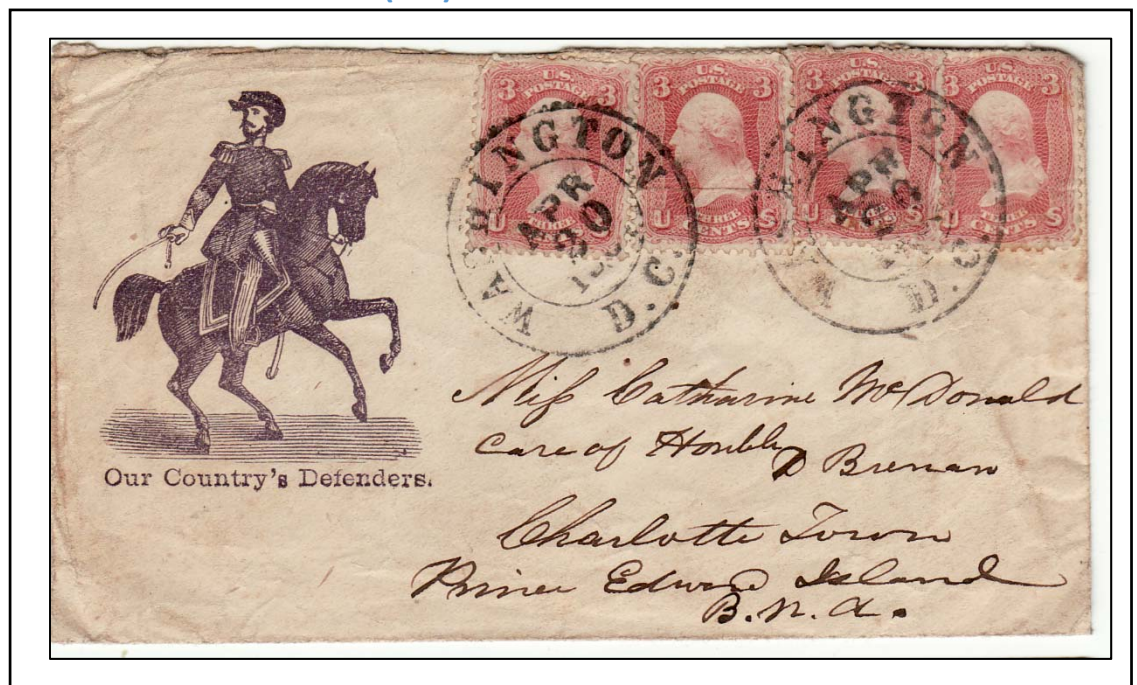 3 U.S. POSTAGE 3
U THREE CENTS S
3 U.S. POSTAGE 3
U THREE CENTS S
3 U.S. POSTAGE 3
U THREE CENTS S
3 U.S. POSTAGE 3
U THREE CENTS S
WASHINGTON D.C.
APR
30
WASHINGTON D.C.
APR
Our Country's Defenders.
Miss Catharine McDonald
Care of Honble D Brenan
Charlotte Town
Prince Edward Island
B.N.A.